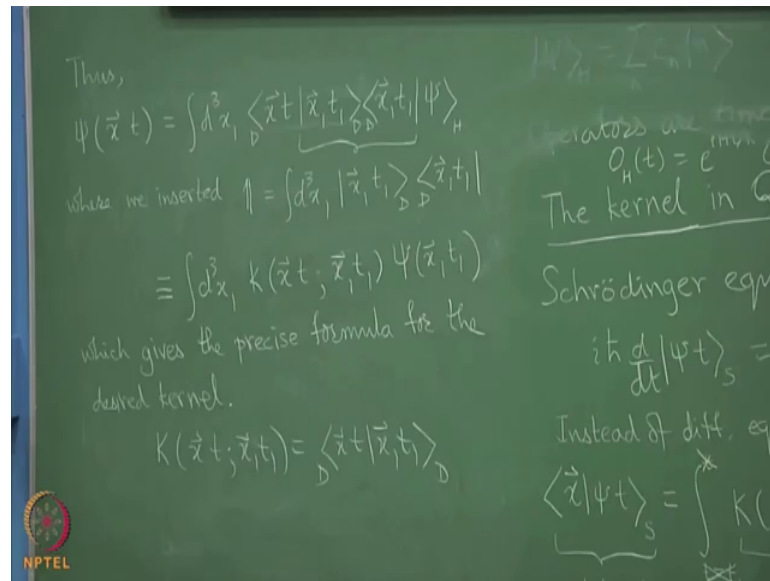 Thus,
Ψ(x⃗ t) = ∫d³x₁ _D⟨x⃗ t|x⃗₁t₁⟩_D _D⟨x⃗₁t₁|Ψ⟩_H
where we inserted 𝟙 = ∫d³x₁ |x⃗₁t₁⟩_D _D⟨x⃗₁t₁|
≡ ∫d³x₁ K(x⃗ t; x⃗₁t₁) Ψ(x⃗₁t₁)
which gives the precise formula for the
desired kernel.
K(x⃗ t; x⃗₁t₁) = _D⟨x⃗ t|x⃗₁t₁⟩_D
|Ψ⟩_H = Σ_n c_n|n⟩
Operators are time
O_H(t) = e
The kernel in Q
Schrödinger equ
iħ d/dt |Ψ t⟩_S =
Instead of diff. eq
⟨x⃗|Ψ t⟩_S = ∫ K(
NPTEL